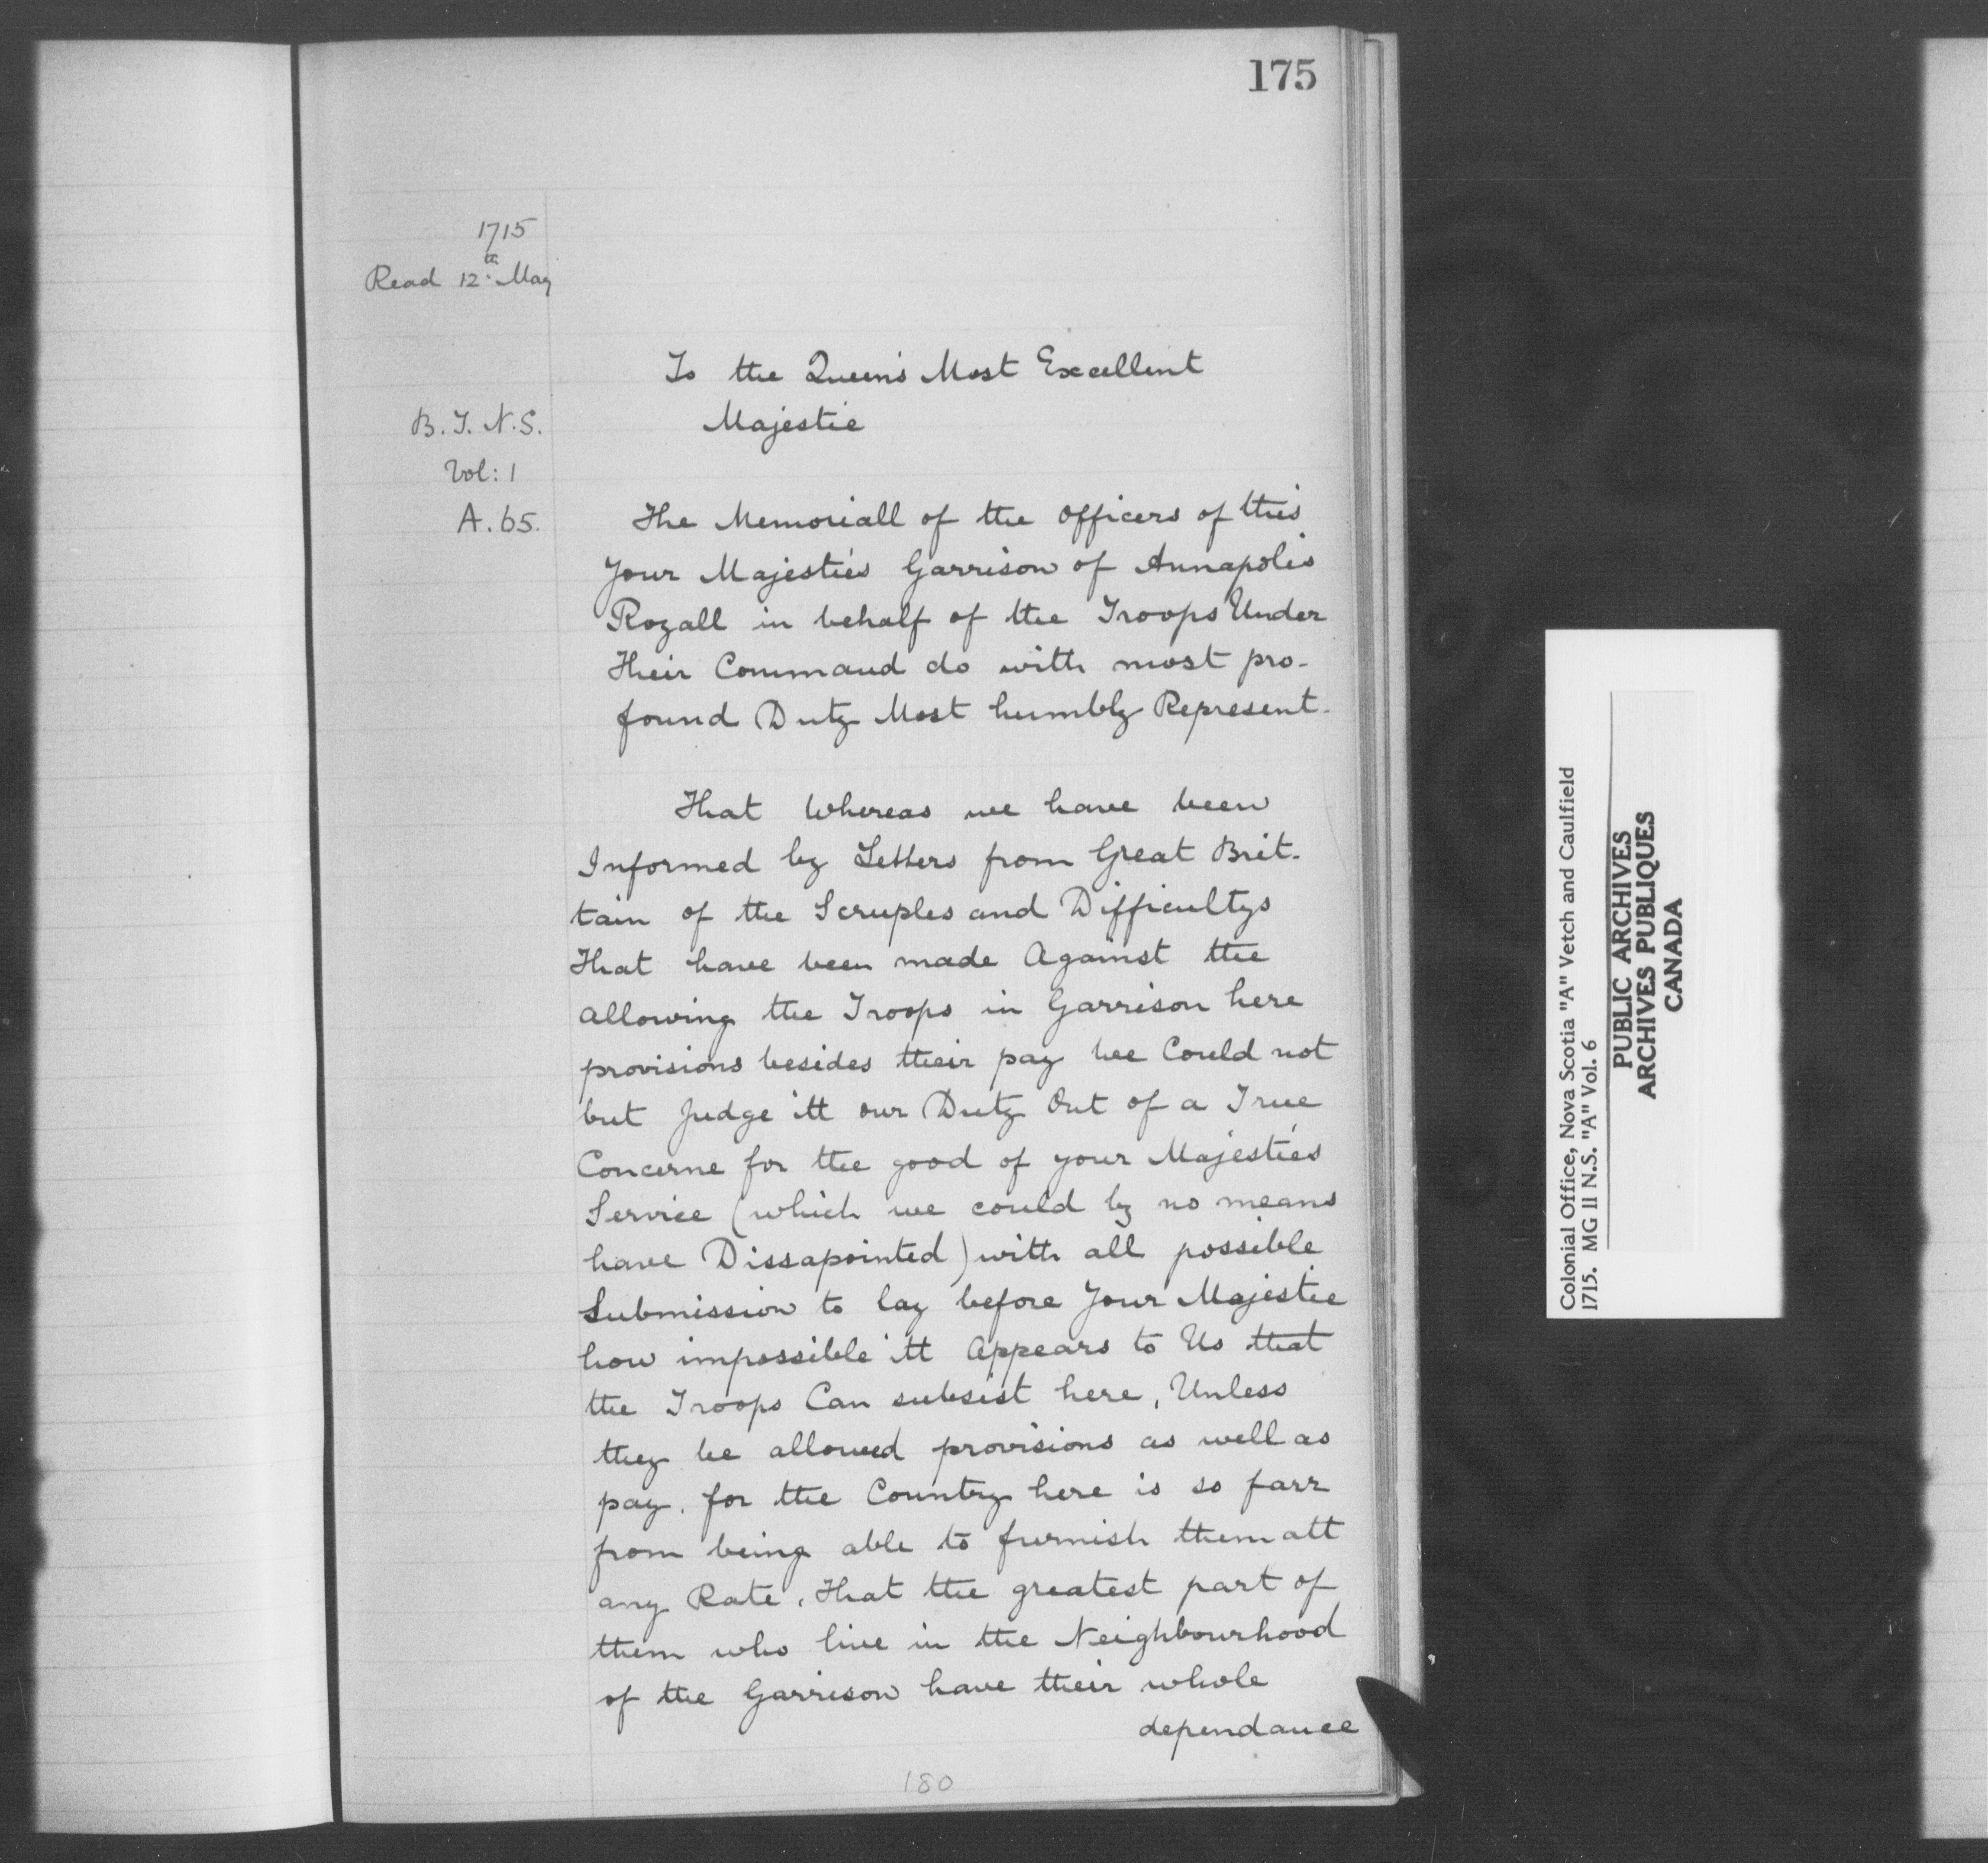 175
1715
Read 12th May
To the Queen's Most Excellent
Majestie
B. T. N. S.
Vol: 1
A. 65.
The Memoriall of the Officers of this
Your Majestie's Garrison of Annapolis
Royall in behalf of the Troops Under
Their Command do with most pro-
found Duty Most humbly Represent.
That Whereas we have been
Informed by Letters from Great Brit-
tain of the Scruples and Difficultys
That have been made Against the
allowing the Troops in Garrison here
provisions besides their pay wee Could not
but Judge itt our Duty Out of a True
Concerne for the good of your Majestie's
Service (which we could by no means
have Dissapointed) with all possible
Submission to lay before Your Majestie
how impossible itt Appears to Us that
the Troops Can subsist here, Unless
they be allowed provisions as well as
pay. for the Country here is so farr
from being able to furnish them att
any Rate, That the greatest part of
them who live in the Neighbourhood
of the Garrison have their whole
dependance
180
Colonial Office, Nova Scotia "A" Vetch and Caulfield
1715. MG 11 N.S. "A" Vol. 6
PUBLIC ARCHIVES
ARCHIVES PUBLIQUES
CANADA